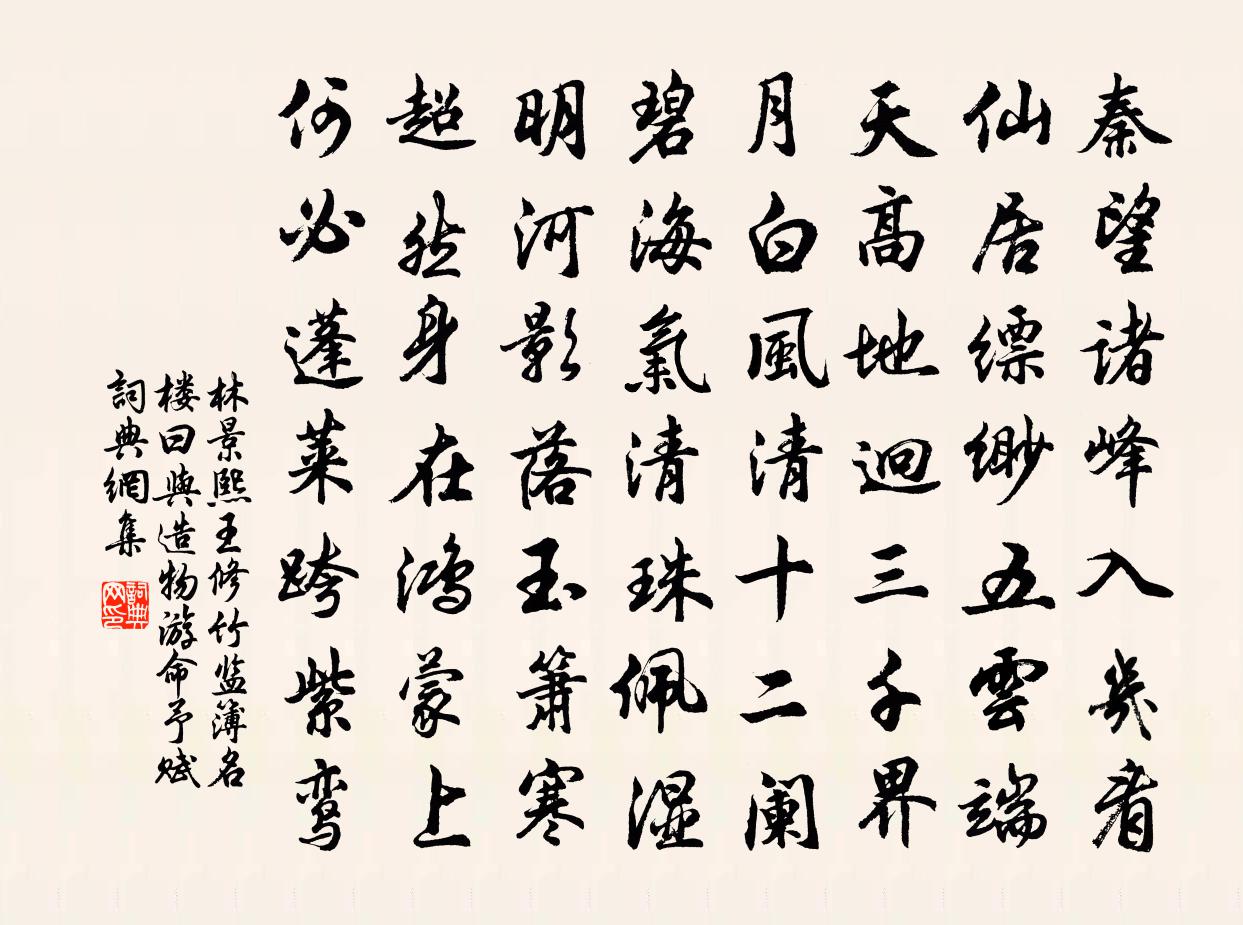 秦望諸峰入几看
仙居縹緲五雲端
天高地迥三千界
月白風清十二闌
碧海氣清珠佩湿
明河影落玉簫寒
超然身在鴻蒙上
何必蓬萊跨紫鸾
林景熙王修竹监簿名
楼曰與造物游命予赋
詞典網集
詞典网印